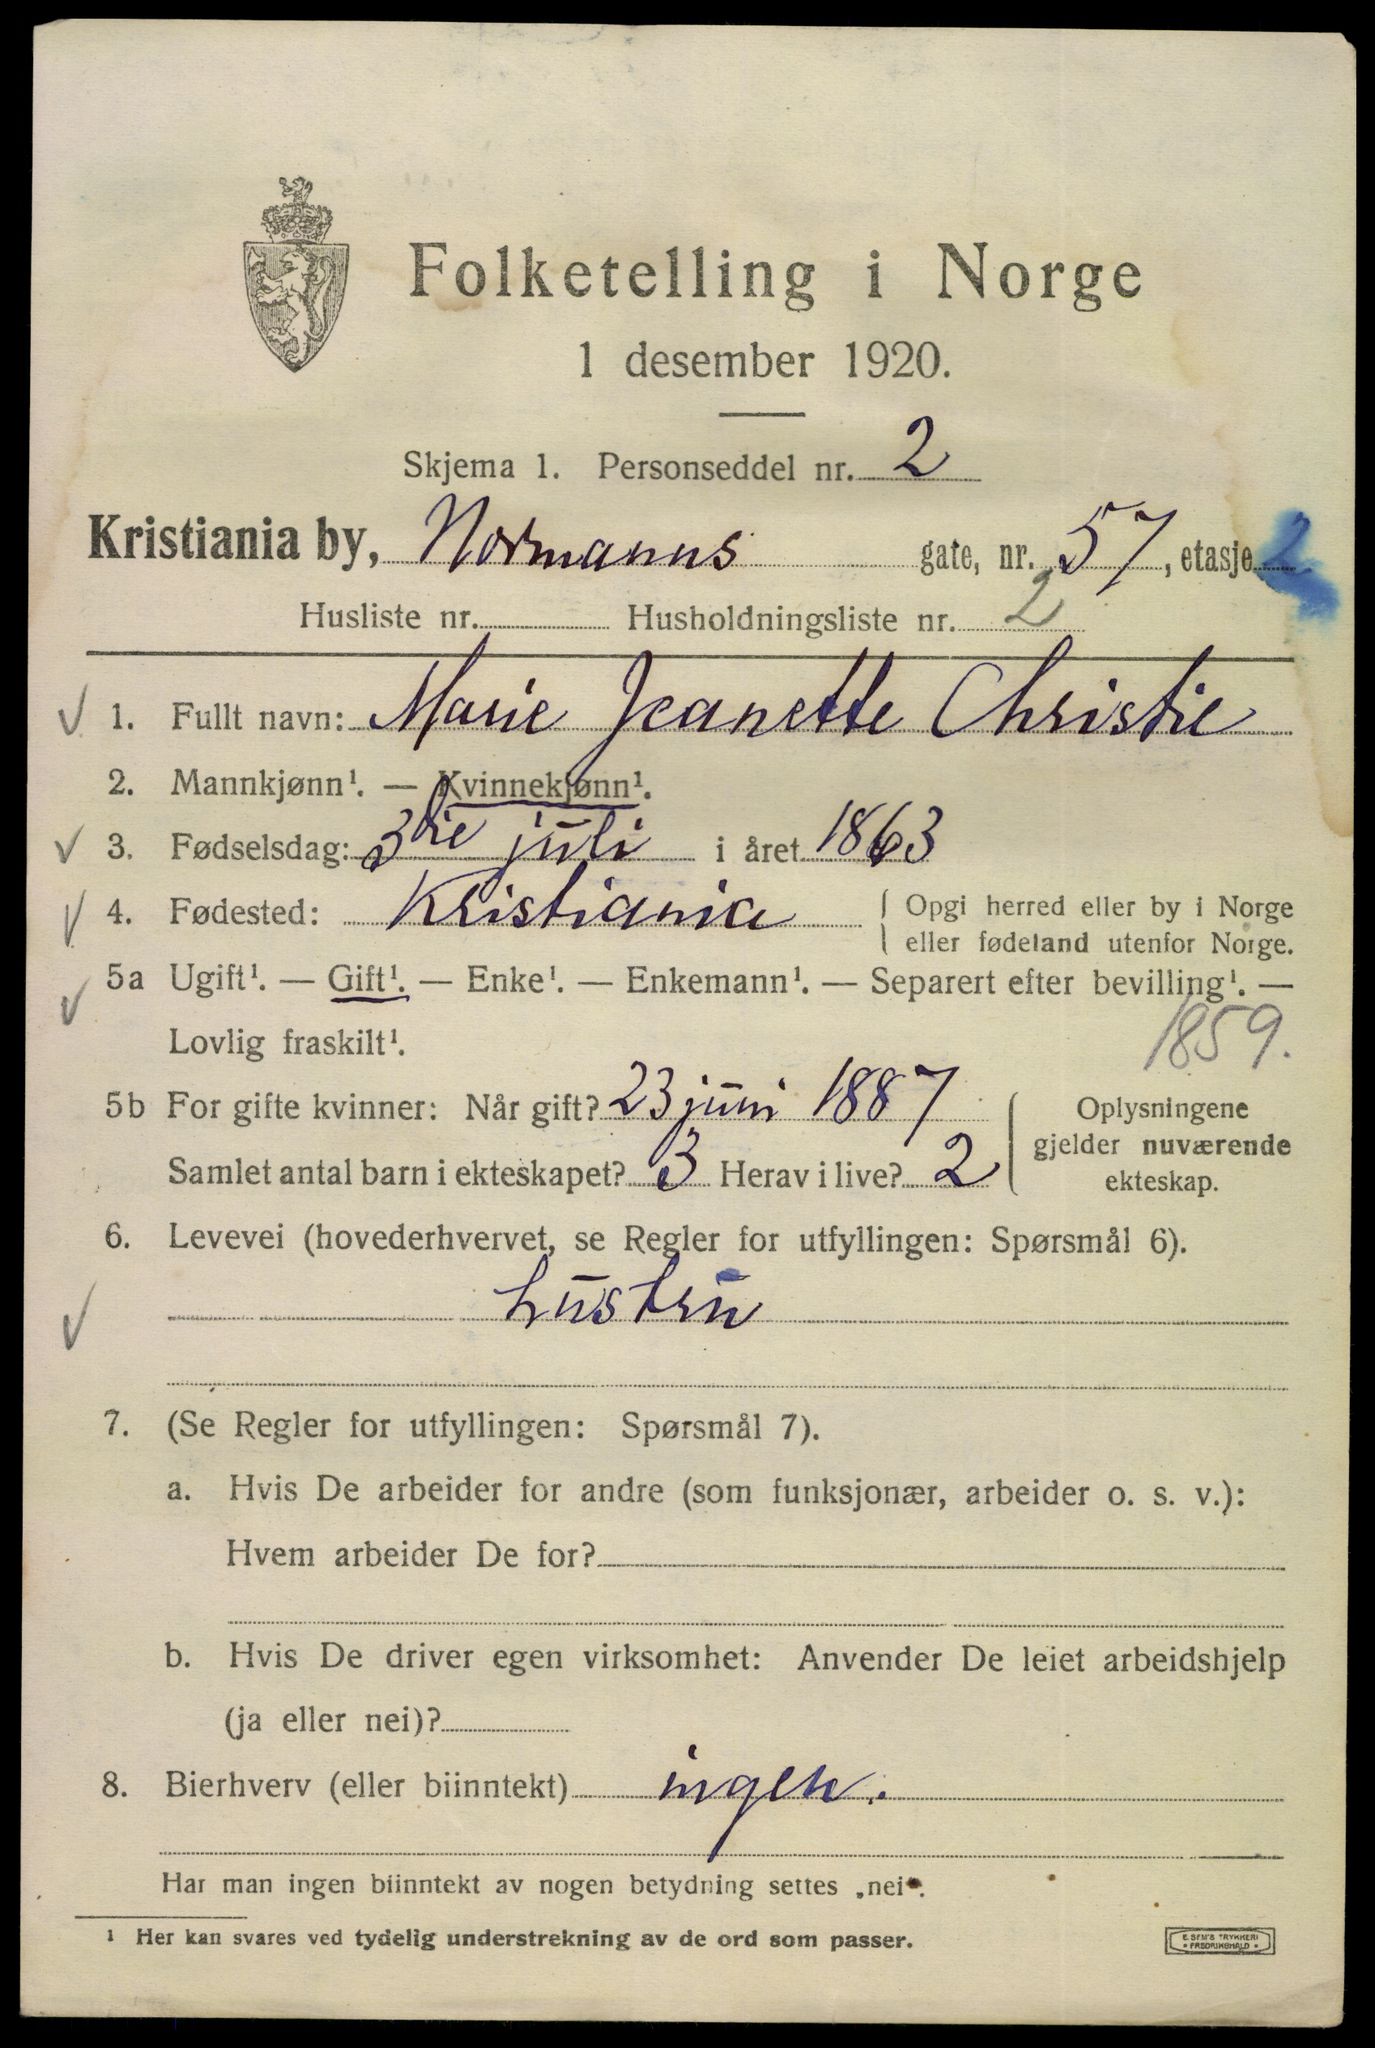 Folketelling i Norge
1 desember 1920.
Skjema 1. Personseddel nr. 2
Kristiania by, Normanns gate, nr. 57, etasje 2
Husliste nr. Husholdningsliste nr. 2
1. Fullt navn: Marie Jeanette Christie
2. Mannkjønn¹. — Kvinnekjønn¹.
3. Fødselsdag: 3die juli i året 1863
4. Fødested: Kristiania { Opgi herred eller by i Norge
eller fødeland utenfor Norge.
5a Ugift¹. — Gift¹. — Enke¹. — Enkemann¹. — Separert efter bevilling¹. —
Lovlig fraskilt¹. 1859.
5b For gifte kvinner: Når gift? 23 juni 1887 Oplysningene
gjelder nuværende
Samlet antal barn i ekteskapet? 3 Herav i live? 2 ekteskap.
6. Levevei (hovederhvervet, se Regler for utfyllingen: Spørsmål 6).
hustru
7. (Se Regler for utfyllingen: Spørsmål 7).
a. Hvis De arbeider for andre (som funksjonær, arbeider o. s. v.):
Hvem arbeider De for?
b. Hvis De driver egen virksomhet: Anvender De leiet arbeidshjelp
(ja eller nei)?
8. Bierhverv (eller biinntekt) ingen.
Har man ingen biinntekt av nogen betydning settes „nei".
¹ Her kan svares ved tydelig understrekning av de ord som passer.
E. SEM'S TRYKKERI
• FREDRIKSHALD •